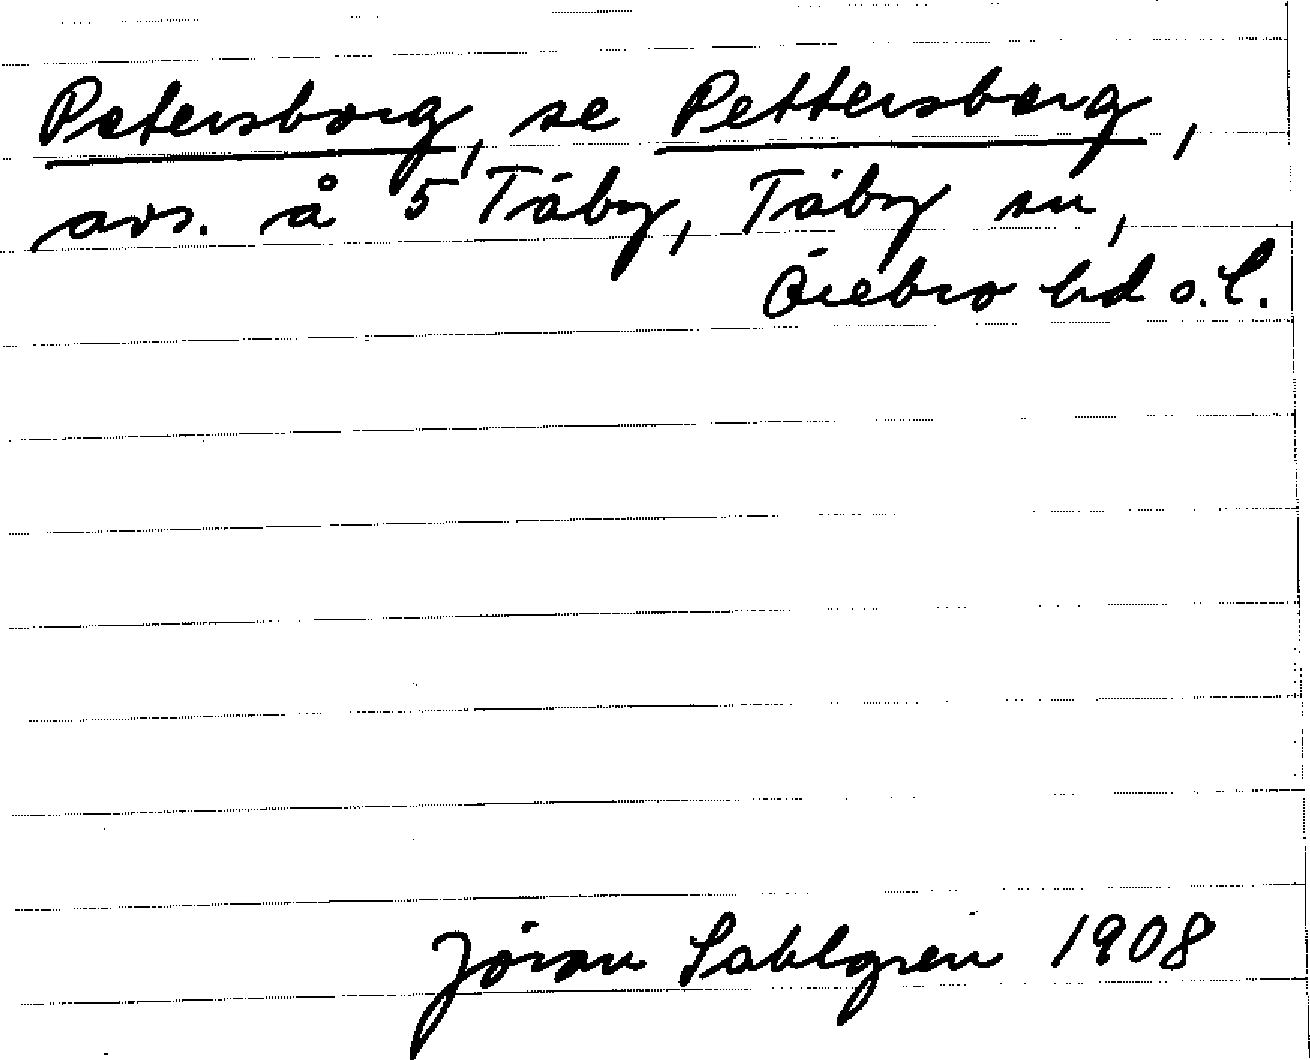 Petersborg, se Pettersberg,
avs. å 5 Täby, Täby sn,
Örebro hd o. l.
Jöran Sahlgren 1908